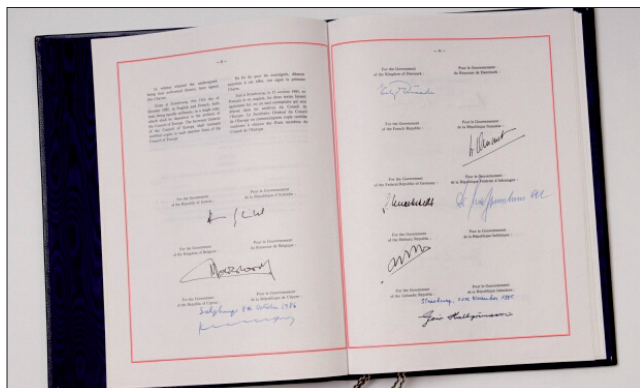 In witness whereof the undersigned,
being duly authorised thereto, have signed
this Charter.
Done at Strasbourg, this 15th day of
October 1985, in English and French, both
texts being equally authentic, in a single copy
which shall be deposited in the archives of
the Council of Europe. The Secretary General
of the Council of Europe shall transmit
certified copies to each member State of the
Council of Europe.
En foi de quoi, les soussignés, dûment
autorisés à cet effet, ont signé la présente
Charte.
Fait à Strasbourg, le 15 octobre 1985, en
français et en anglais, les deux textes faisant
également foi, en un seul exemplaire qui sera
déposé dans les archives du Conseil de
l'Europe. Le Secrétaire Général du Conseil
de l'Europe en communiquera copie certifiée
conforme à chacun des États membres du
Conseil de l'Europe.
For the Government
of the Republic of Austria :
Pour le Gouvernement
de la République d'Autriche :
For the Government
of the Kingdom of Belgium :
Pour le Gouvernement
du Royaume de Belgique :
For the Government
of the Republic of Cyprus :
Pour le Gouvernement
de la République de Chypre :
1986
For the Government
of the Kingdom of Denmark :
Pour le Gouvernement
du Royaume de Danemark :
For the Government
of the French Republic :
Pour le Gouvernement
de la République française :
For the Government
of the Federal Republic of Germany :
Pour le Gouvernement
de la République Fédérale d'Allemagne :
For the Government
of the Hellenic Republic :
Pour le Gouvernement
de la République hellénique :
For the Government
of the Icelandic Republic :
Pour le Gouvernement
de la République islandaise :
Strasbourg, 20th November 1985